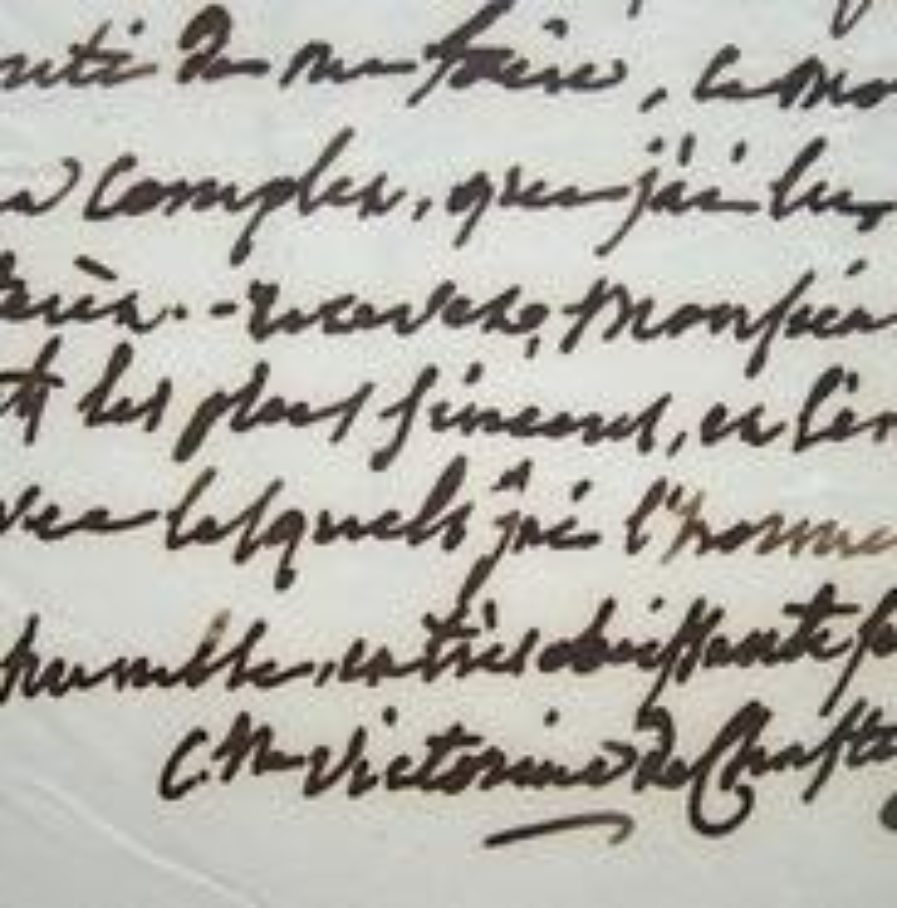 de me faire, ce mo
compler, que j'ai lu
recevez, Monsieu
les plus sinceres, et l'en
vec lesquels j'ai l'honne
humble, et très obeissante se
C. Victorine de Chaste